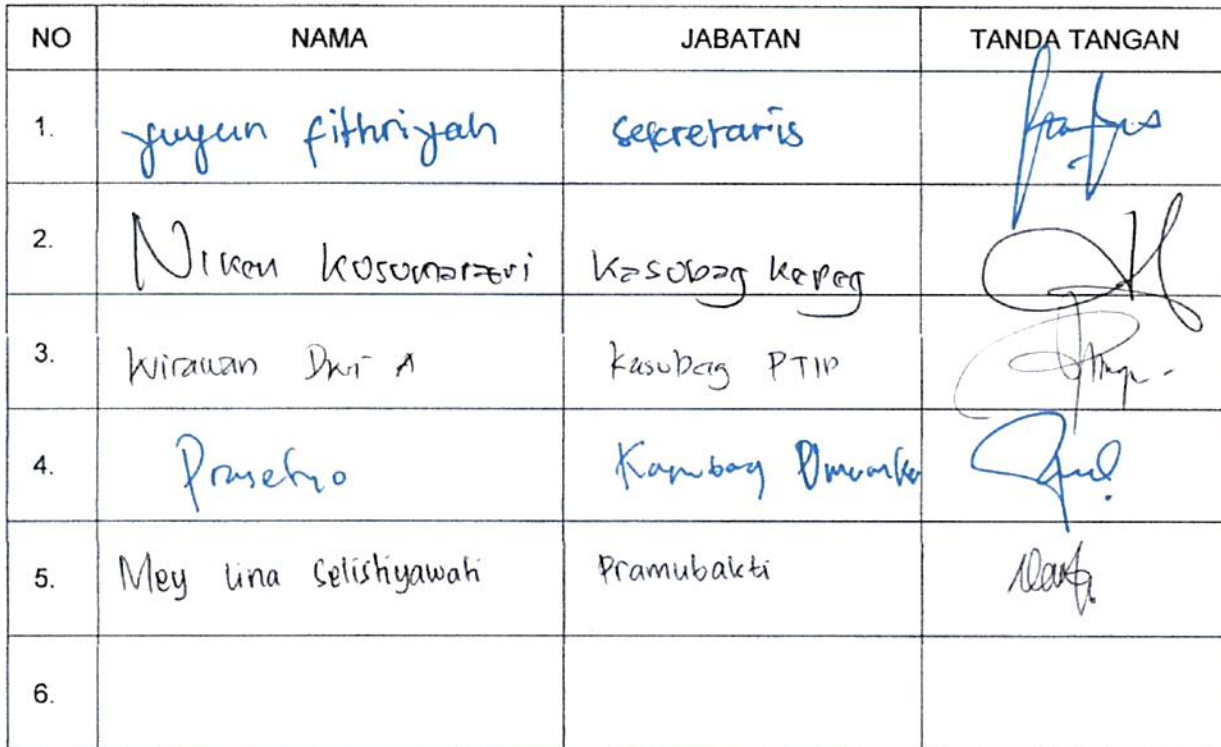 NO NAMA JABATAN TANDA TANGAN
1. Yuyun Fithriyah Sekretaris
2. Niken Kusumarari Kasubag Kepeg
3. Wirawan Dwi A Kasubag PTIP
4. Prasetyo Kasubag
5. Mey Lina Selistiyawati Pramubakti
6.